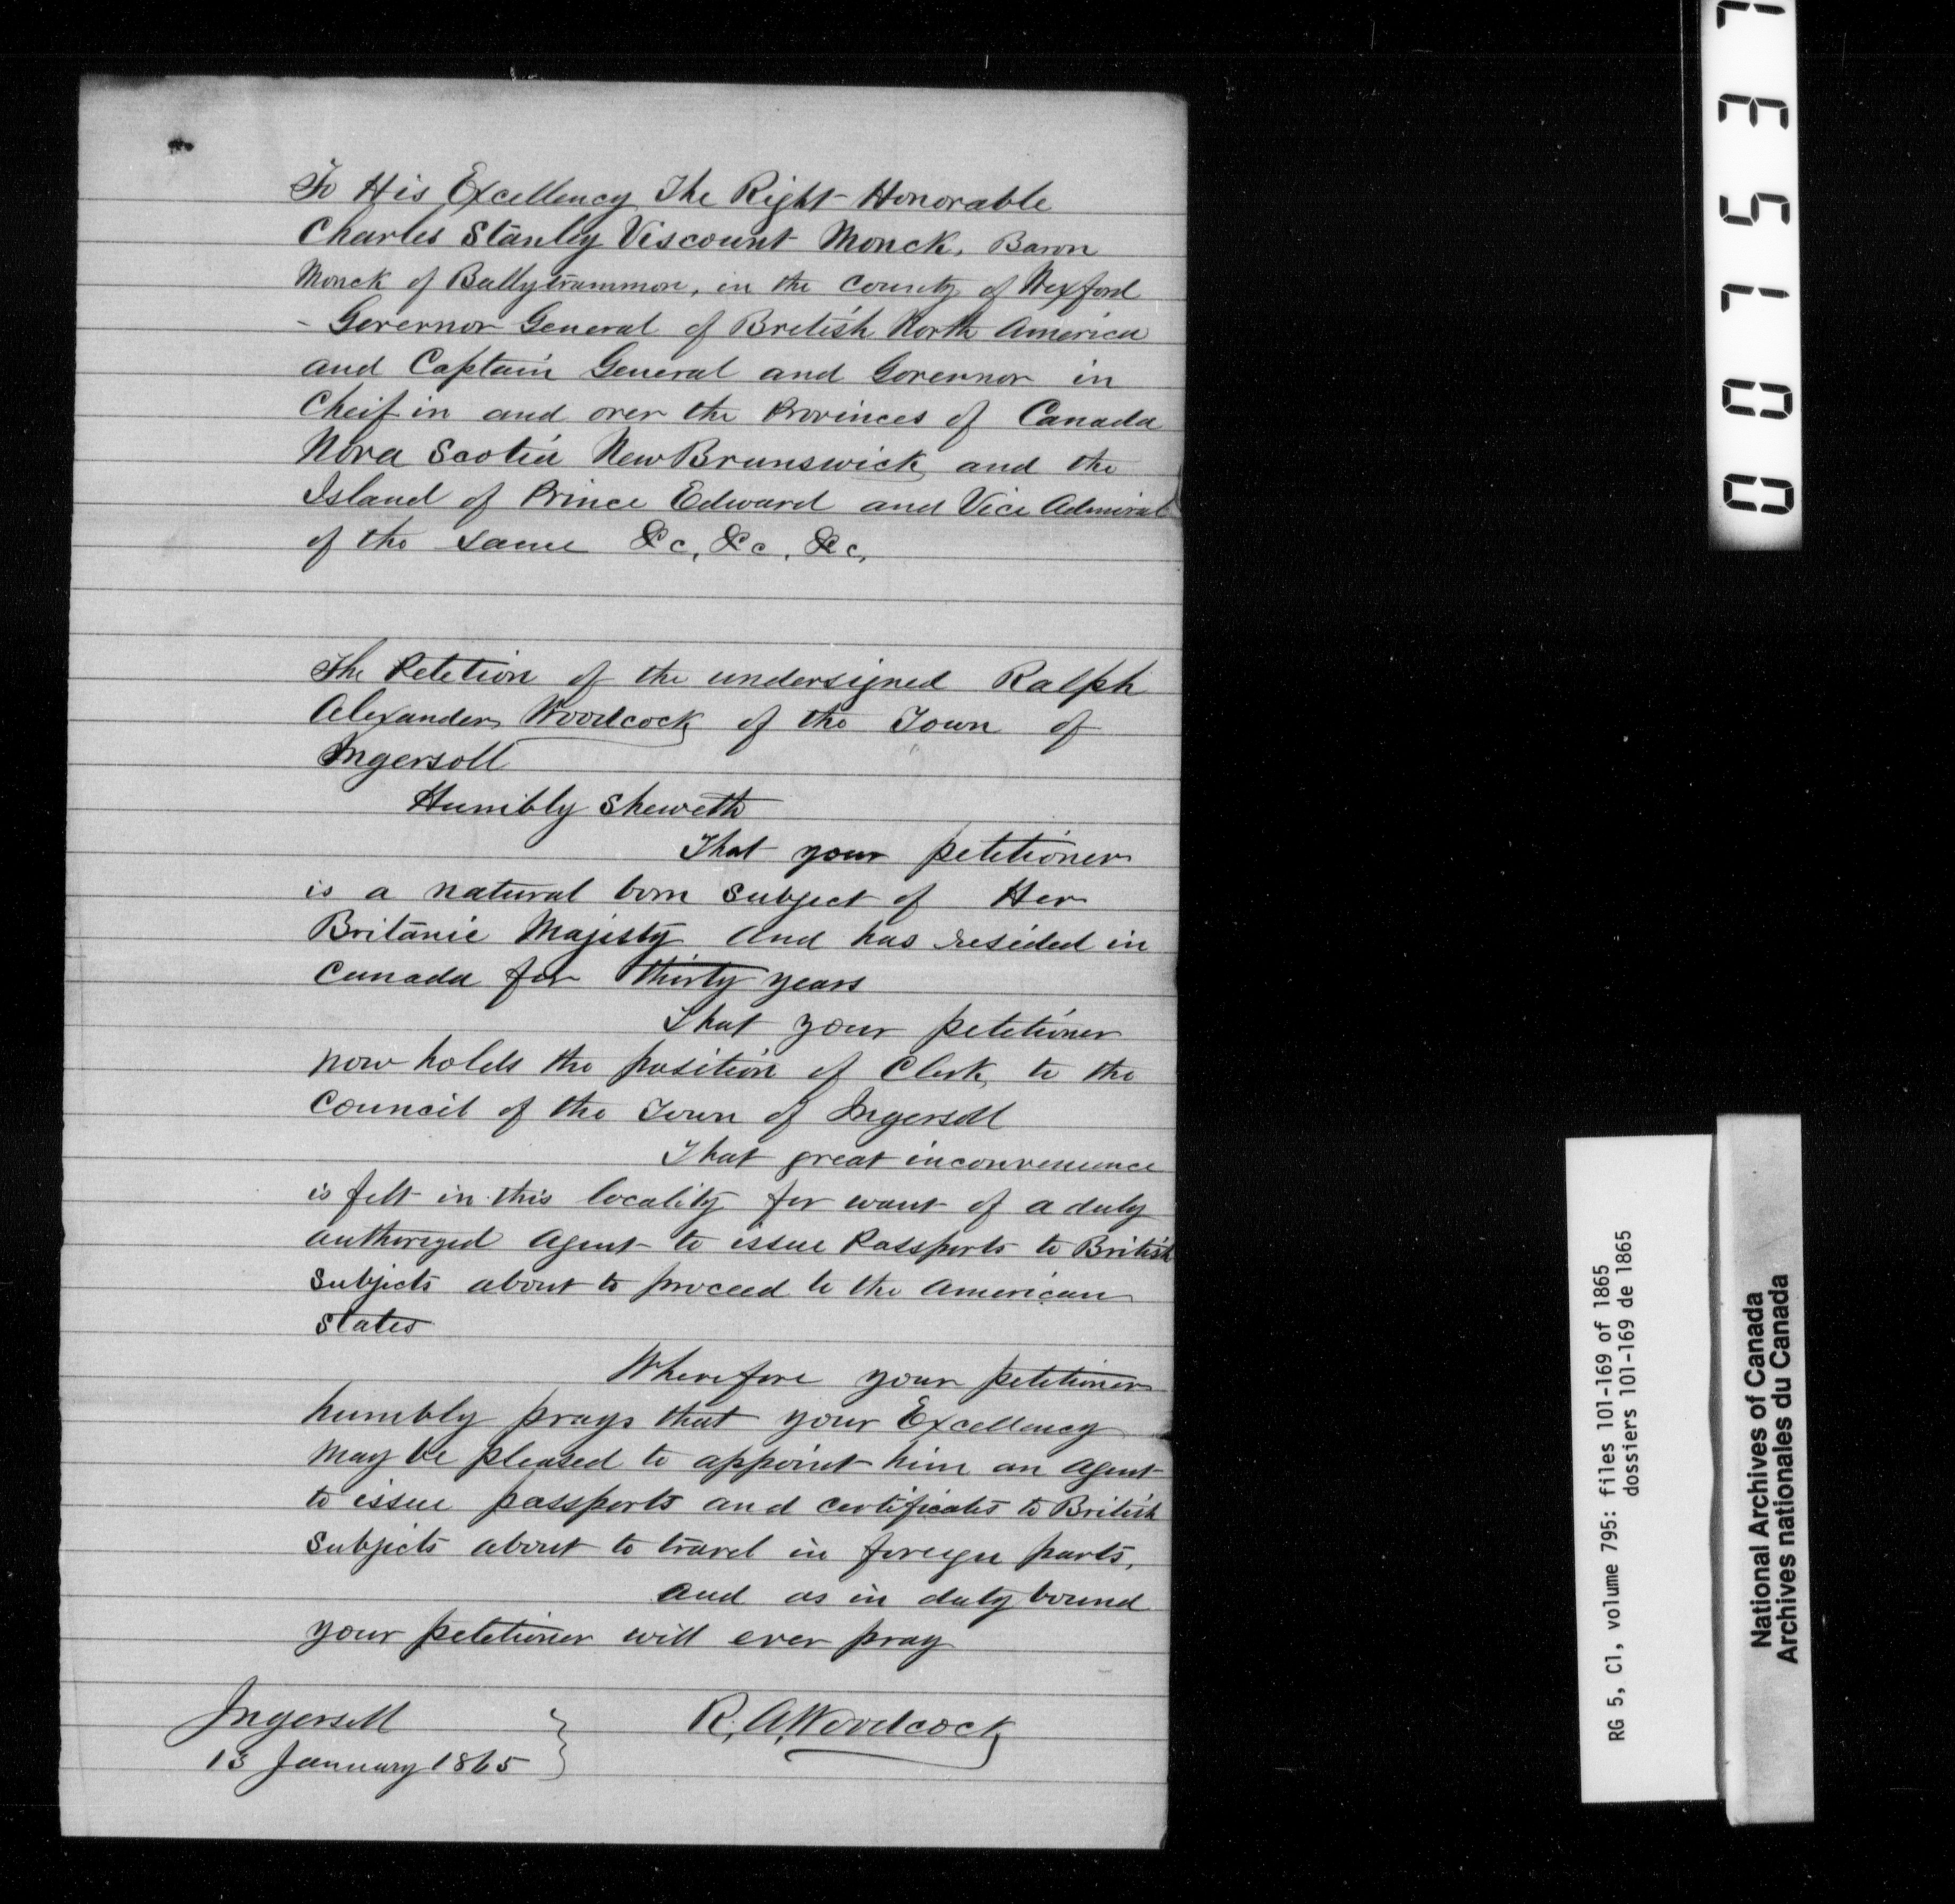 To His Excellency The Right Honorable
Charles Stanley Viscount Monck, Baron
Monck of Ballytrammon, in the County of Wexford
- Governor General of British North America
and Captain General and Governor in
Cheif in and over the Provinces of Canada
Nova Scotia New Brunswick and the
Island of Prince Edward and Vice Admiral
of the same &c, &c, &c,
The Petetion of the undersigned Ralph
Alexander Woodcock of the Town of
Ingersoll
Humbly Sheweth
That your petitioner
is a natural born Subject of Her
Britanic Majesty and has resided in
Canada for thirty years
That your petitioner
now holds the position of Clerk to the
Council of the Town of Ingersoll
That great inconvenience
is felt in this locality for want of a duly
authorized Agent to issue Passports to British
Subjects about to proceed to the American
States
Wherefore your petitioner
humbly prays that your Excellency
may be pleased to appoint him an Agent
to issue passports and certificates to British
Subjects about to travel in foreign parts,
and as in duty bound
your petitioner will ever pray
Ingersoll
13 January 1865
R. A. Woodcock
001537
RG 5, C1, volume 795: files 101-169 of 1865
dossiers 101-169 de 1865
National Archives of Canada
Archives nationales du Canada